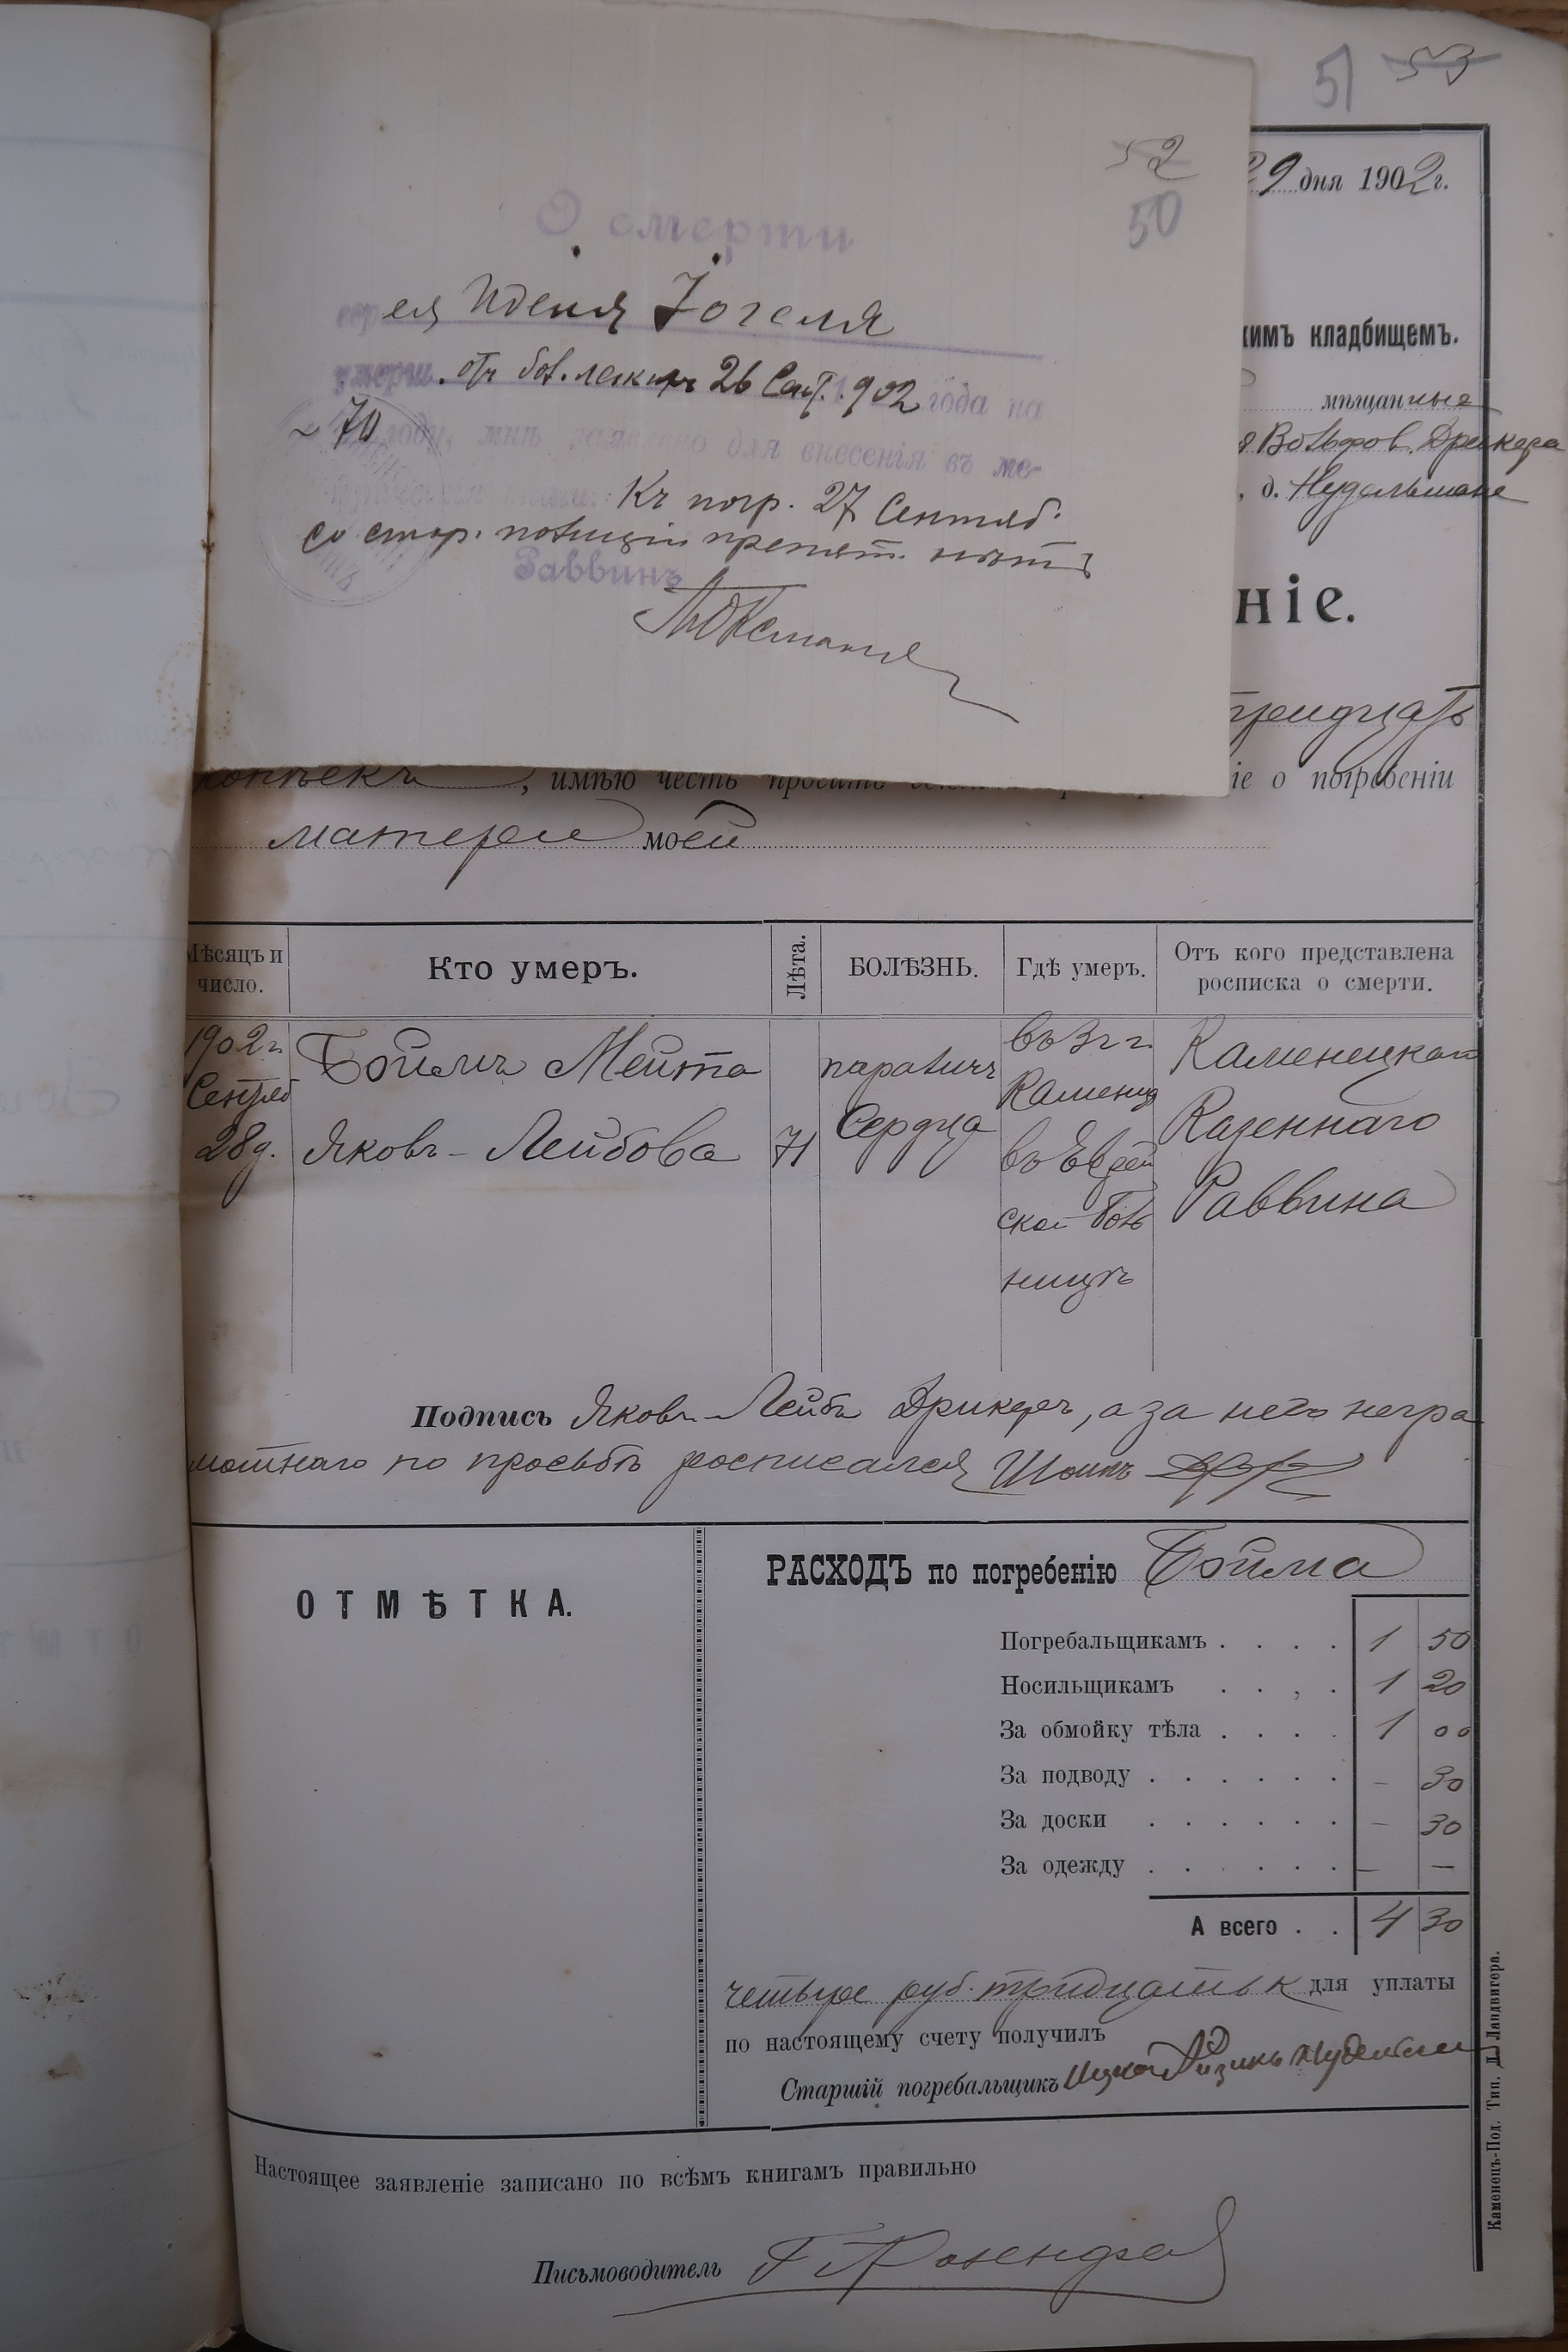 51 53
52
50
29 дня 1902 г.
О смерти
евреи Иденя Іогеля
умерш. отъ бол. легкихъ 26 Сент. 1902 года на
70 году, мнѣ заявлено для внесенія въ ме-
Къ погр. 27 Сентяб.
со стор. полиціи препят. нѣтъ
Раввинъ
кимъ кладбищемъ.
мѣщанина
Вольфов. Дрикера
, д. Нудельмана
ніе.
тридцать
копѣекъ, имѣю честь просить о погребеніи
матери моей
Мѣсяцъ и число.
Кто умеръ.
Лѣта.
БОЛѢЗНЬ.
Гдѣ умеръ.
Отъ кого представлена росписка о смерти.
1902 г.
Сентяб
28 д.
Бойма Мейта
Яковъ-Лейбова
71
параличъ
Сердца
въ г.
Каменц
въ Еврей
ской боль
ницѣ
Каменецкаго
Казеннаго
Раввина
Подпись Яковъ-Лейба Дрикеръ, а за него негра
мотнаго по просьбѣ росписался
ОТМѢТКА.
РАСХОДЪ по погребенію Бойма
Погребальщикамъ . . . . 1 50
Носильщикамъ . . , . 1 20
За обмойку тѣла . . . . 1 00
За подводу . . . . . . – 30
За доски . . . . . . – 30
За одежду . . . . . . — —
А всего . . 4 30
четыре руб. тридцать к для уплаты
по настоящему счету получилъ
Старшій погребальщикъ
Настоящее заявленіе записано по всѣмъ книгамъ правильно
Письмоводитель
Каменецъ-Под. Тип. Д. Ландвигера.